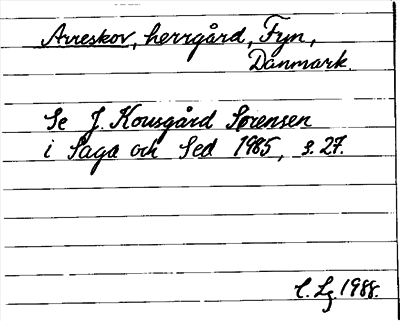 Arreskov, herrgård, Fyn,
Danmark.
Se J. Kousgård Sørensen
i Saga och Sed 1985, s. 27.
C. Lg. 1988.